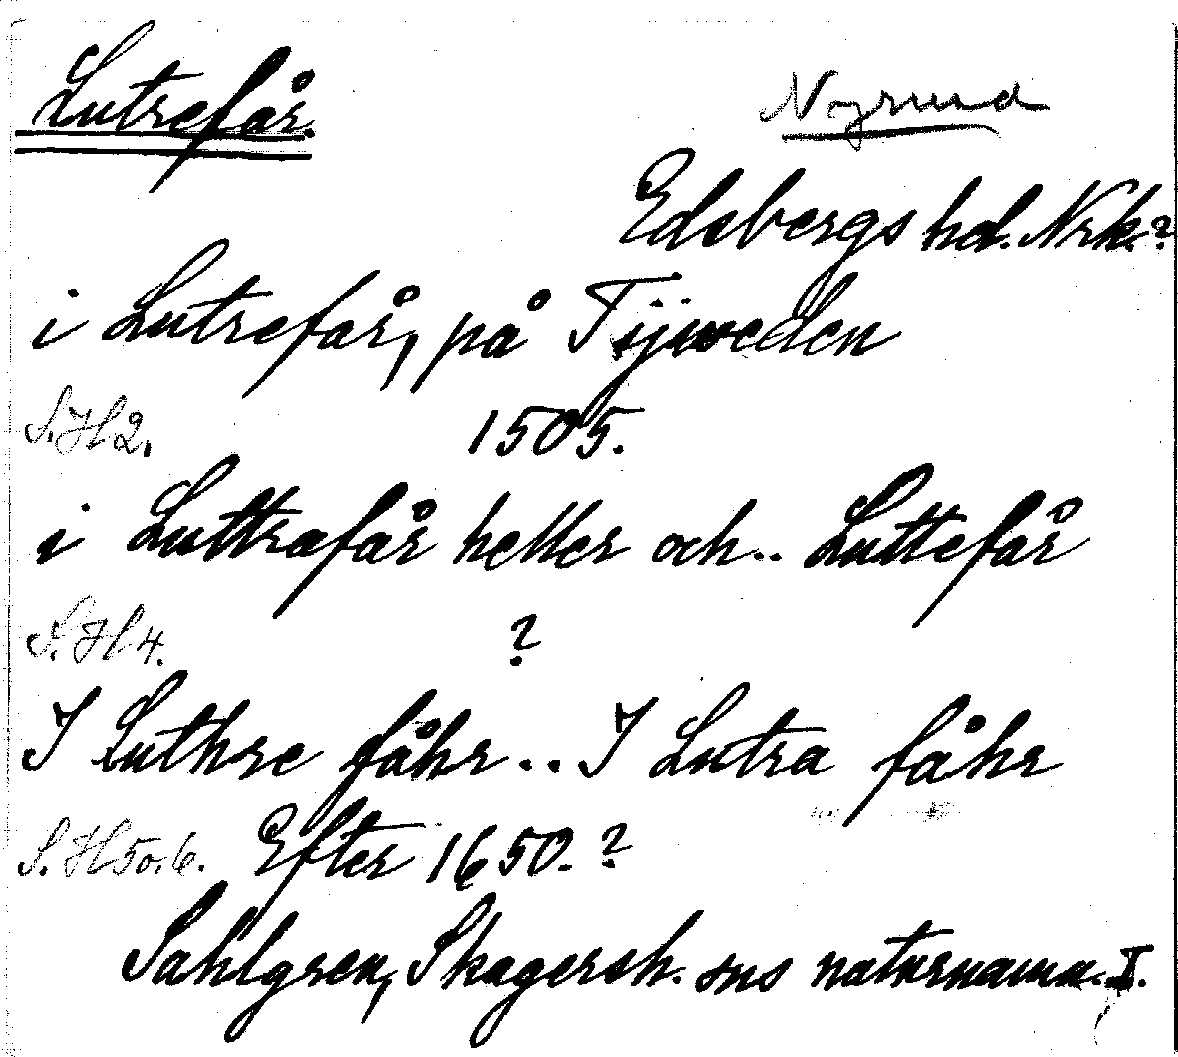 Lutrefår.
Nygrund
Edsbergs hd. Nrk.?
i Lutrefår, på Tijweden
S. H 2. 1505.
i Luttrafår heller och .. Luttefår
S. H 4. ?
I Luthre fåhr .. I Lutra fåhr
S. H 5 o. 6. Efter 1650. ?
Sahlgren, Skagersh. sns naturnamn. I.